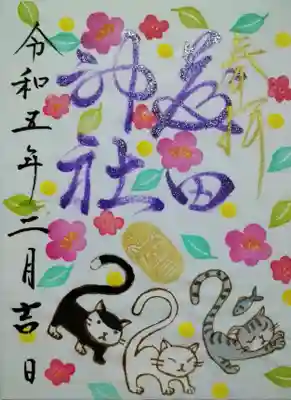 奉拝
田
神社
令和五年二月吉日